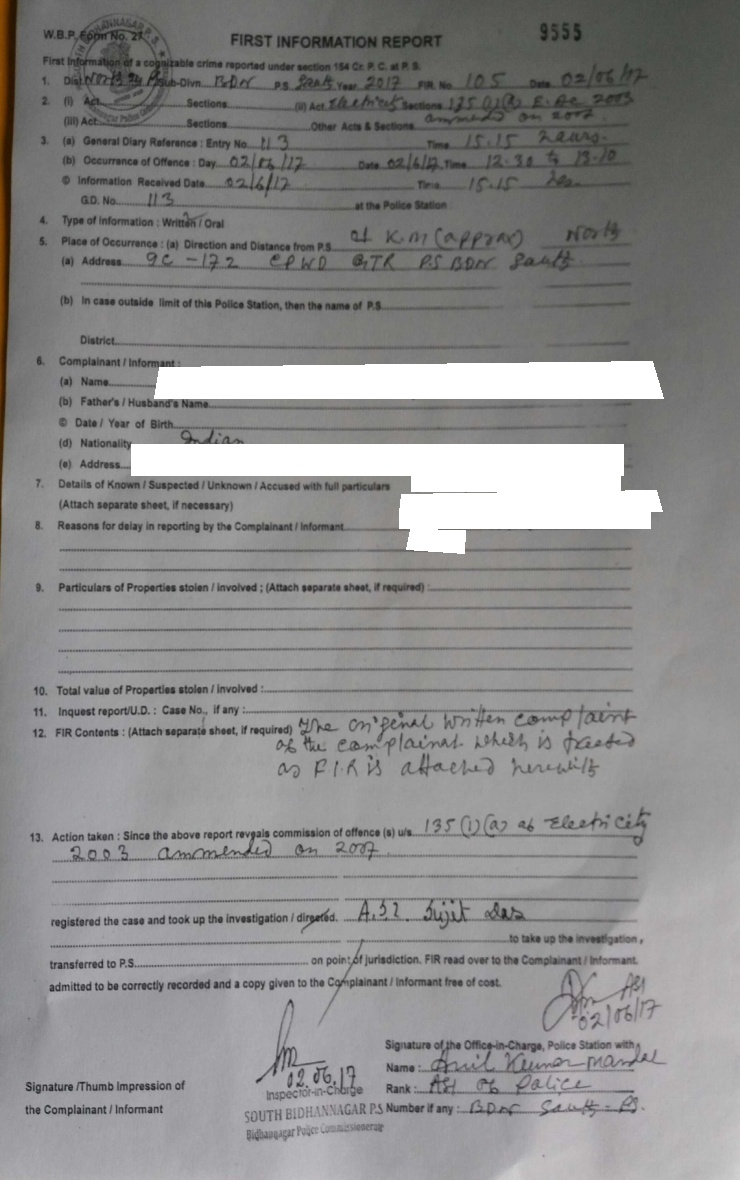 W.B.P. Form No. 27
9555
FIRST INFORMATION REPORT
First Information of a cognizable crime reported under section 154 Cr. P. C. at P. S.
1. Dist North 24 Sub-Divn. BDN P.S. South Year 2017 FIR No. 105 Date 02/06/17
2. (i) Act Sections (ii) Act Electricity Sections 135 (1)(a) E. Ac 2003
(iii) Act Sections Other Acts & Sections ammended on 2007
3. (a) General Diary Reference : Entry No. 113 Time 15.15 hours.
(b) Occurrence of Offence : Day 02/06/17 Date 02/6/17 Time 12.30 to 13.10
© Information Received Date 02/6/17 Time 15.15 hrs
G.D. No. 113 at the Police Station
4. Type of information : Written / Oral
5. Place of Occurrence : (a) Direction and Distance from P.S. KM (approx) North
(a) Address 9C - 172 CPWD QTR PS BDN South
(b) In case outside limit of this Police Station, then the name of P.S
District
6. Complainant / Informant :
(a) Name
(b) Father's / Husband's Name
© Date / Year of Birth
(d) Nationality Indian
(e) Address
7. Details of Known / Suspected / Unknown / Accused with full particulars
(Attach separate sheet, if necessary)
8. Reasons for delay in reporting by the Complainant / Informant
9. Particulars of Properties stolen / involved ; (Attach separate sheet, if required) :
10. Total value of Properties stolen / involved :
11. Inquest report/U.D. : Case No., if any :
12. FIR Contents : (Attach separate sheet, if required) The original written complaint
of the complainat which is treated
as F.I.R is attached herewith
13. Action taken : Since the above report reveals commission of offence (s) u/s. 135 (1)(a) of Electricity
2003 ammended on 2007
registered the case and took up the investigation / directed. A.S.I. Sujit Das
to take up the investigation,
transferred to P.S. on point of jurisdiction. FIR read over to the Complainant / Informant.
admitted to be correctly recorded and a copy given to the Complainant / Informant free of cost.
ASI
02/06/17
02.06.17
Inspector-in-Charge
SOUTH BIDHANNAGAR P.S
Bidhannagar Police Commissionerate
Signature of the Office-in-Charge, Police Station with
Name : Anil Kumar Mandal
Rank : ASI of Police
Number if any : BDN South PS.
Signature /Thumb Impression of
the Complainant / Informant